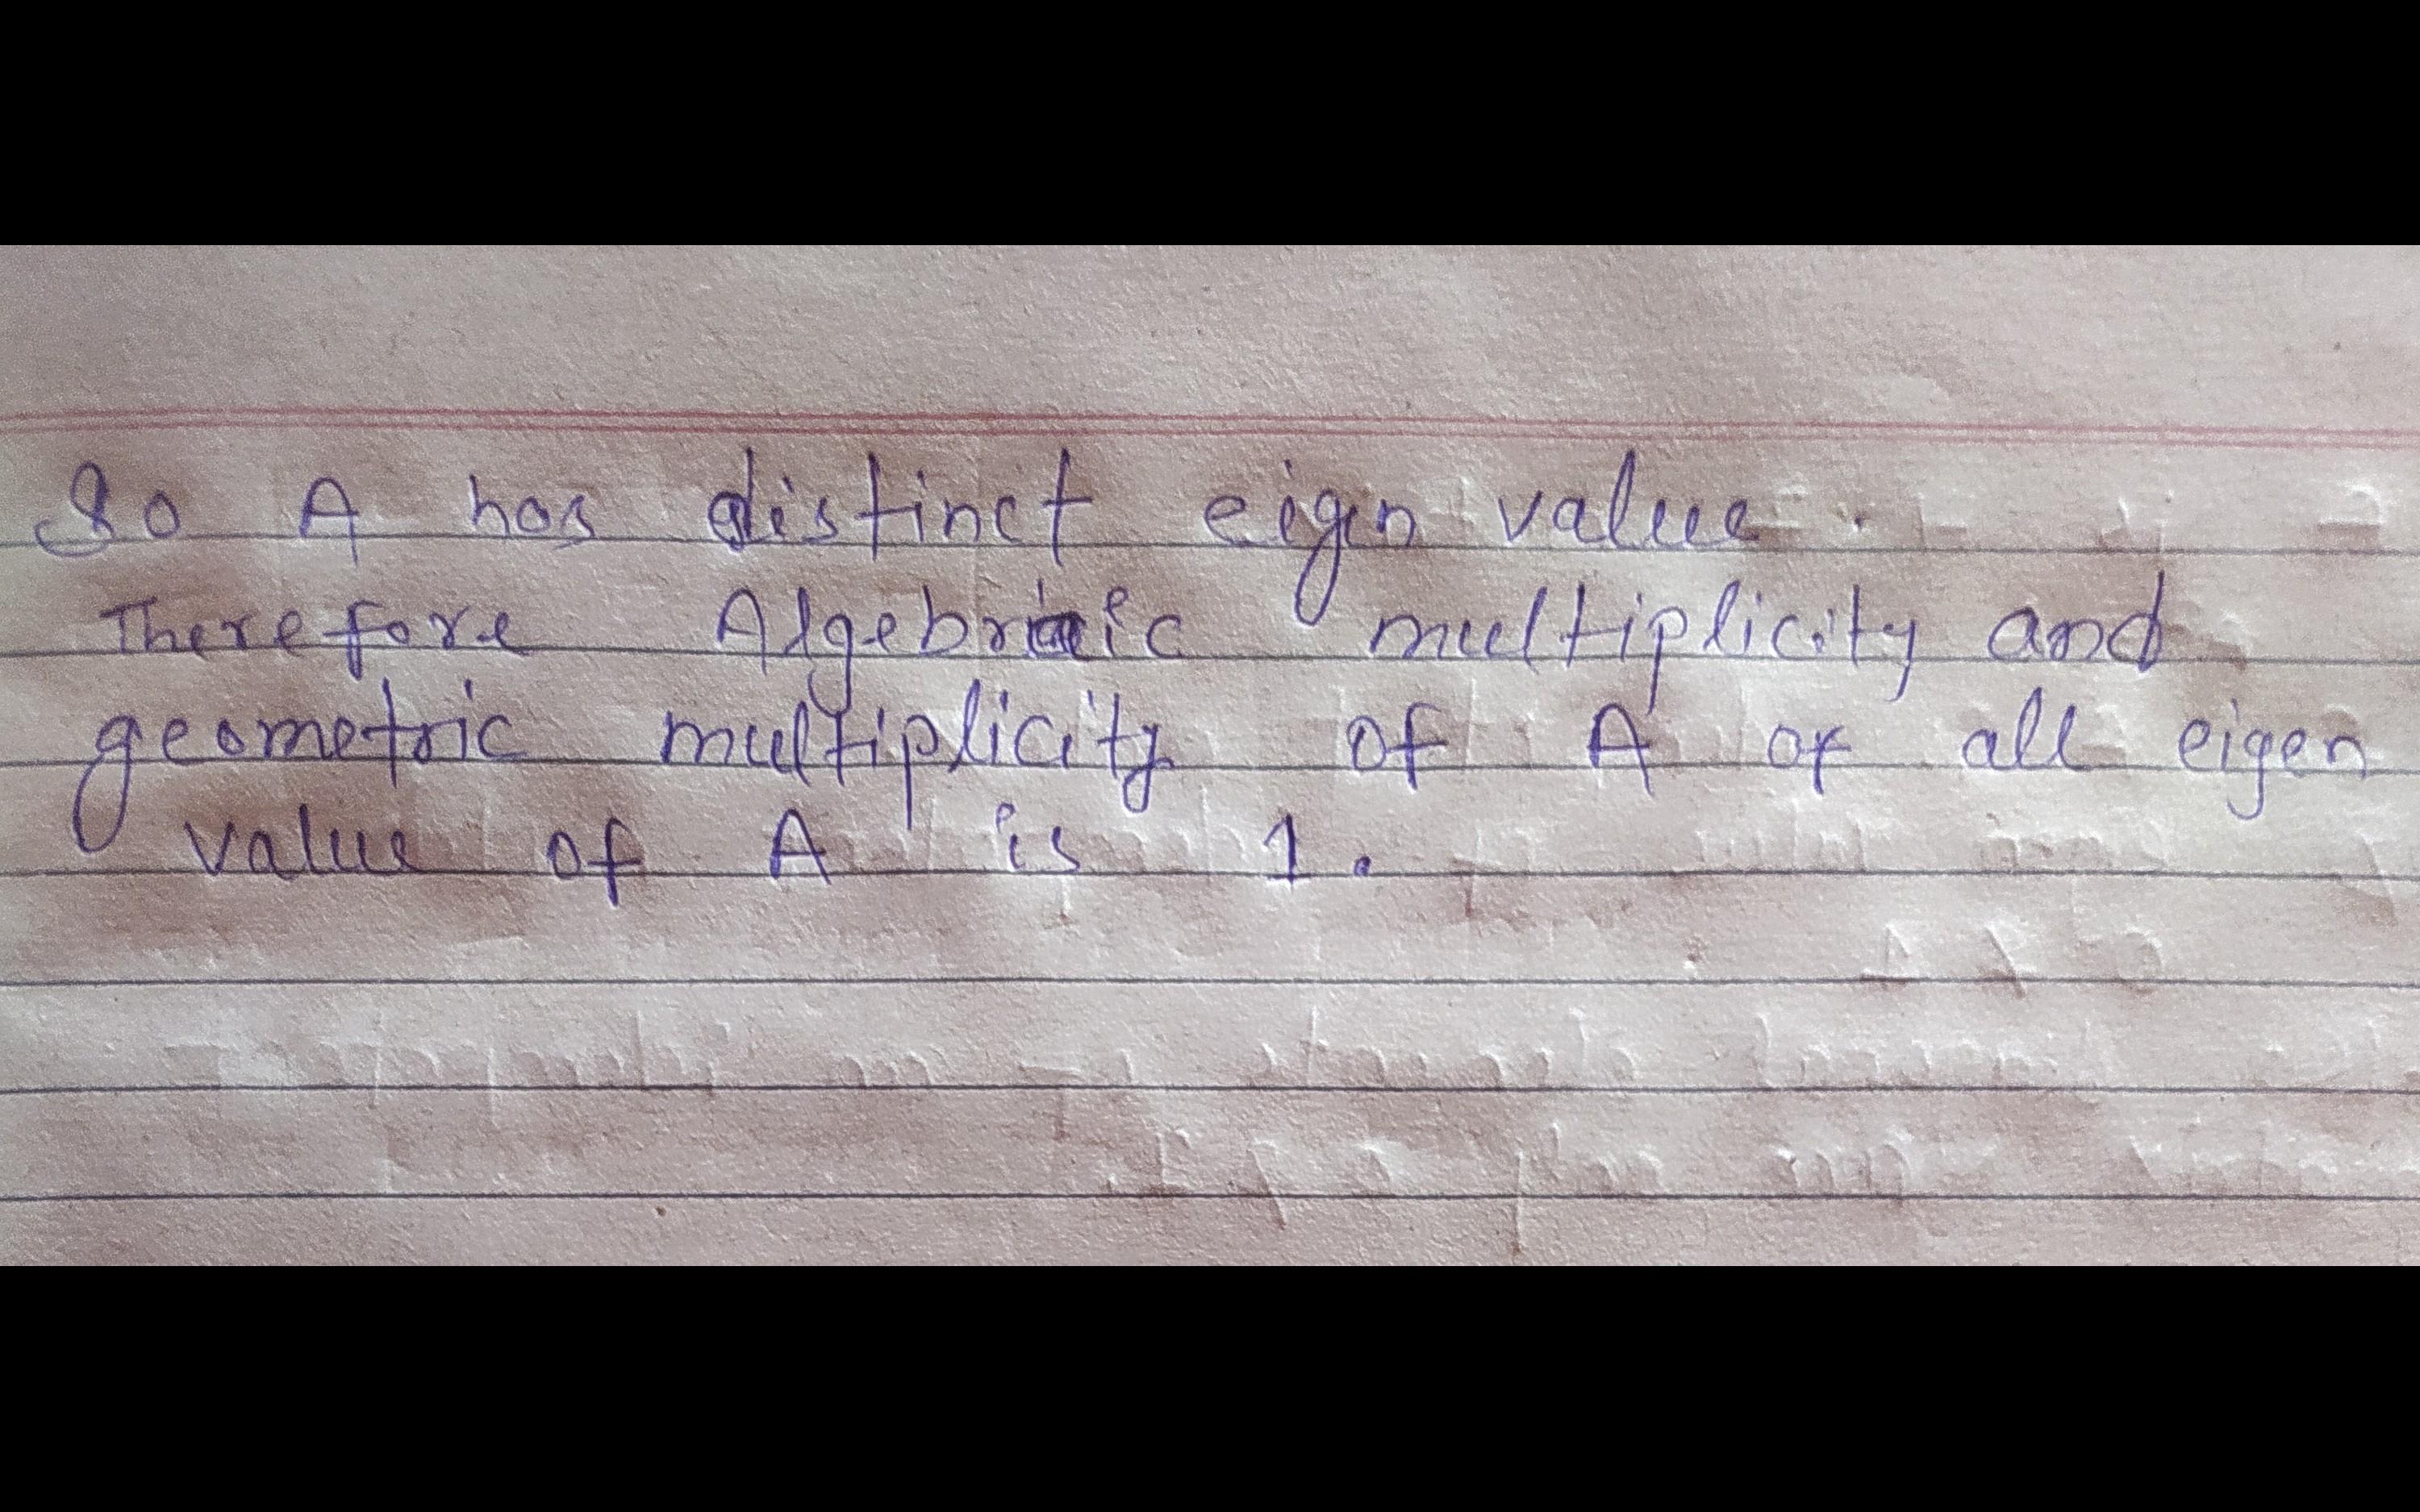 So A has distinct eigen value.
Therefore Algebraic multiplicity and
geometric multiplicity of A of all eigen
value of A is 1.